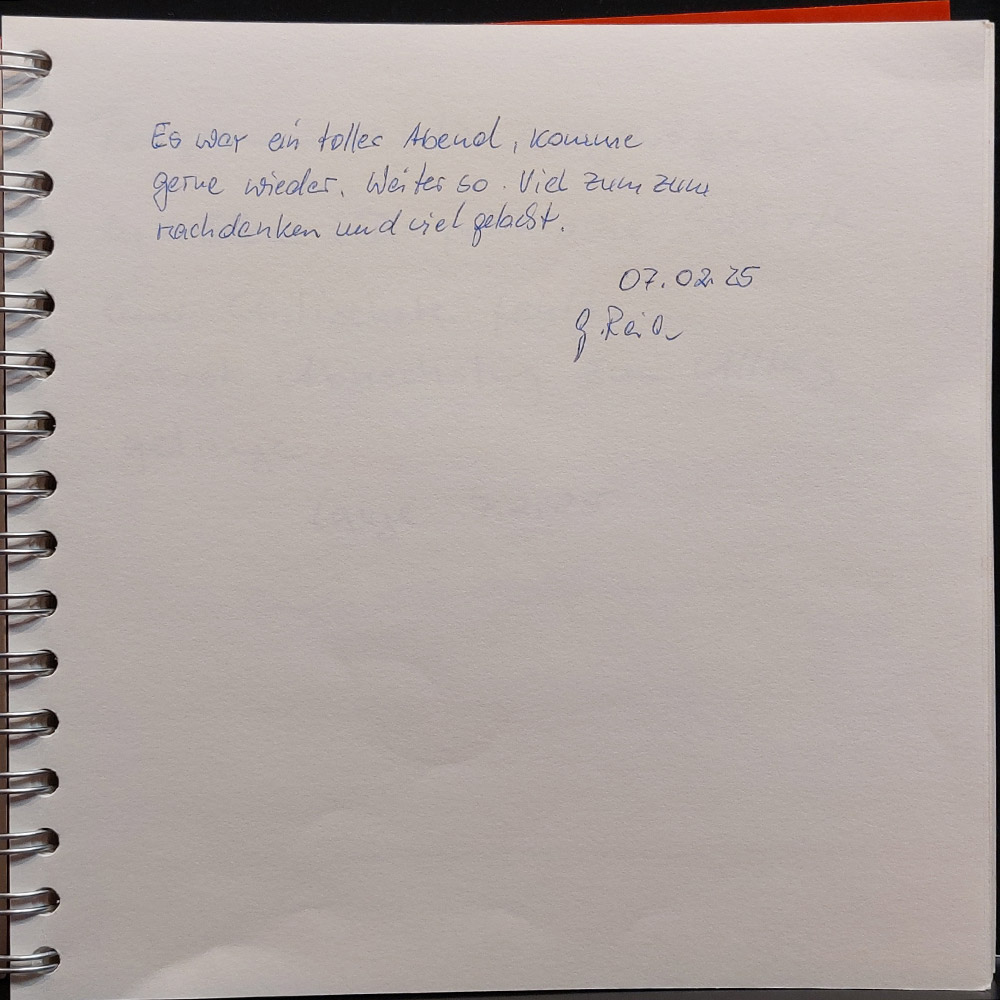 Es war ein toller Abend, komme
gerne wieder. Weiter so. Viel zum zum
nachdenken und viel gelacht.
07.02.25